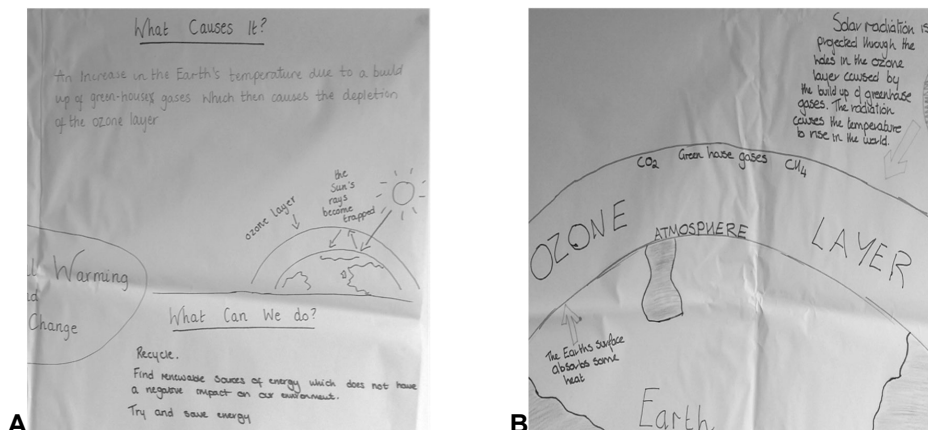 What Causes It?
An Increase in the Earth's temperature due to a build
up of green-houses gases which then causes the depletion
of the ozone layer
the
Sun's
rays
become
trapped
ozone layer
Warming
Change
What Can We do?
Recycle.
Find renewable sources of energy which does not have
a negative impact on our environment.
Try and save energy
A
Solar radiation is
projected through the
holes in the ozone
layer caused by
the build up of greenhouse
gases. The radiation
causes the temperature
to rise in the world.
CO2 Green house gases CH4
OZONE LAYER
ATMOSPHERE
The Earths surface
absorbs some
heat
Earth
B